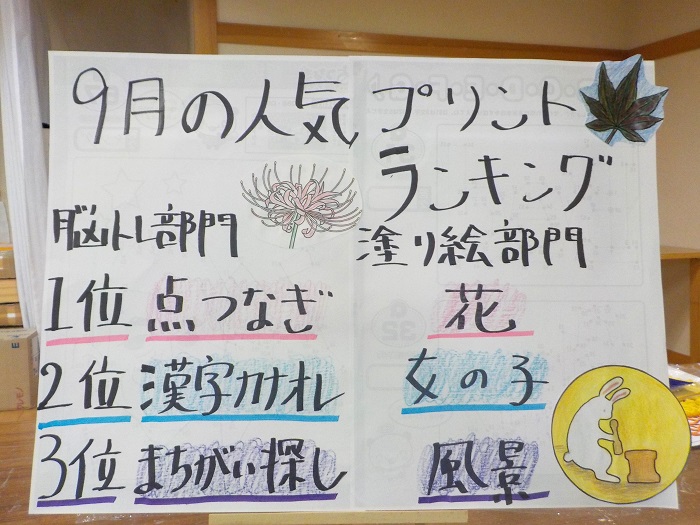 9月の人気プリント
ランキング
脳トレ部門 塗り絵部門
1位 点つなぎ 花
2位 漢字カナオレ 女の子
3位 まちがい探し 風景